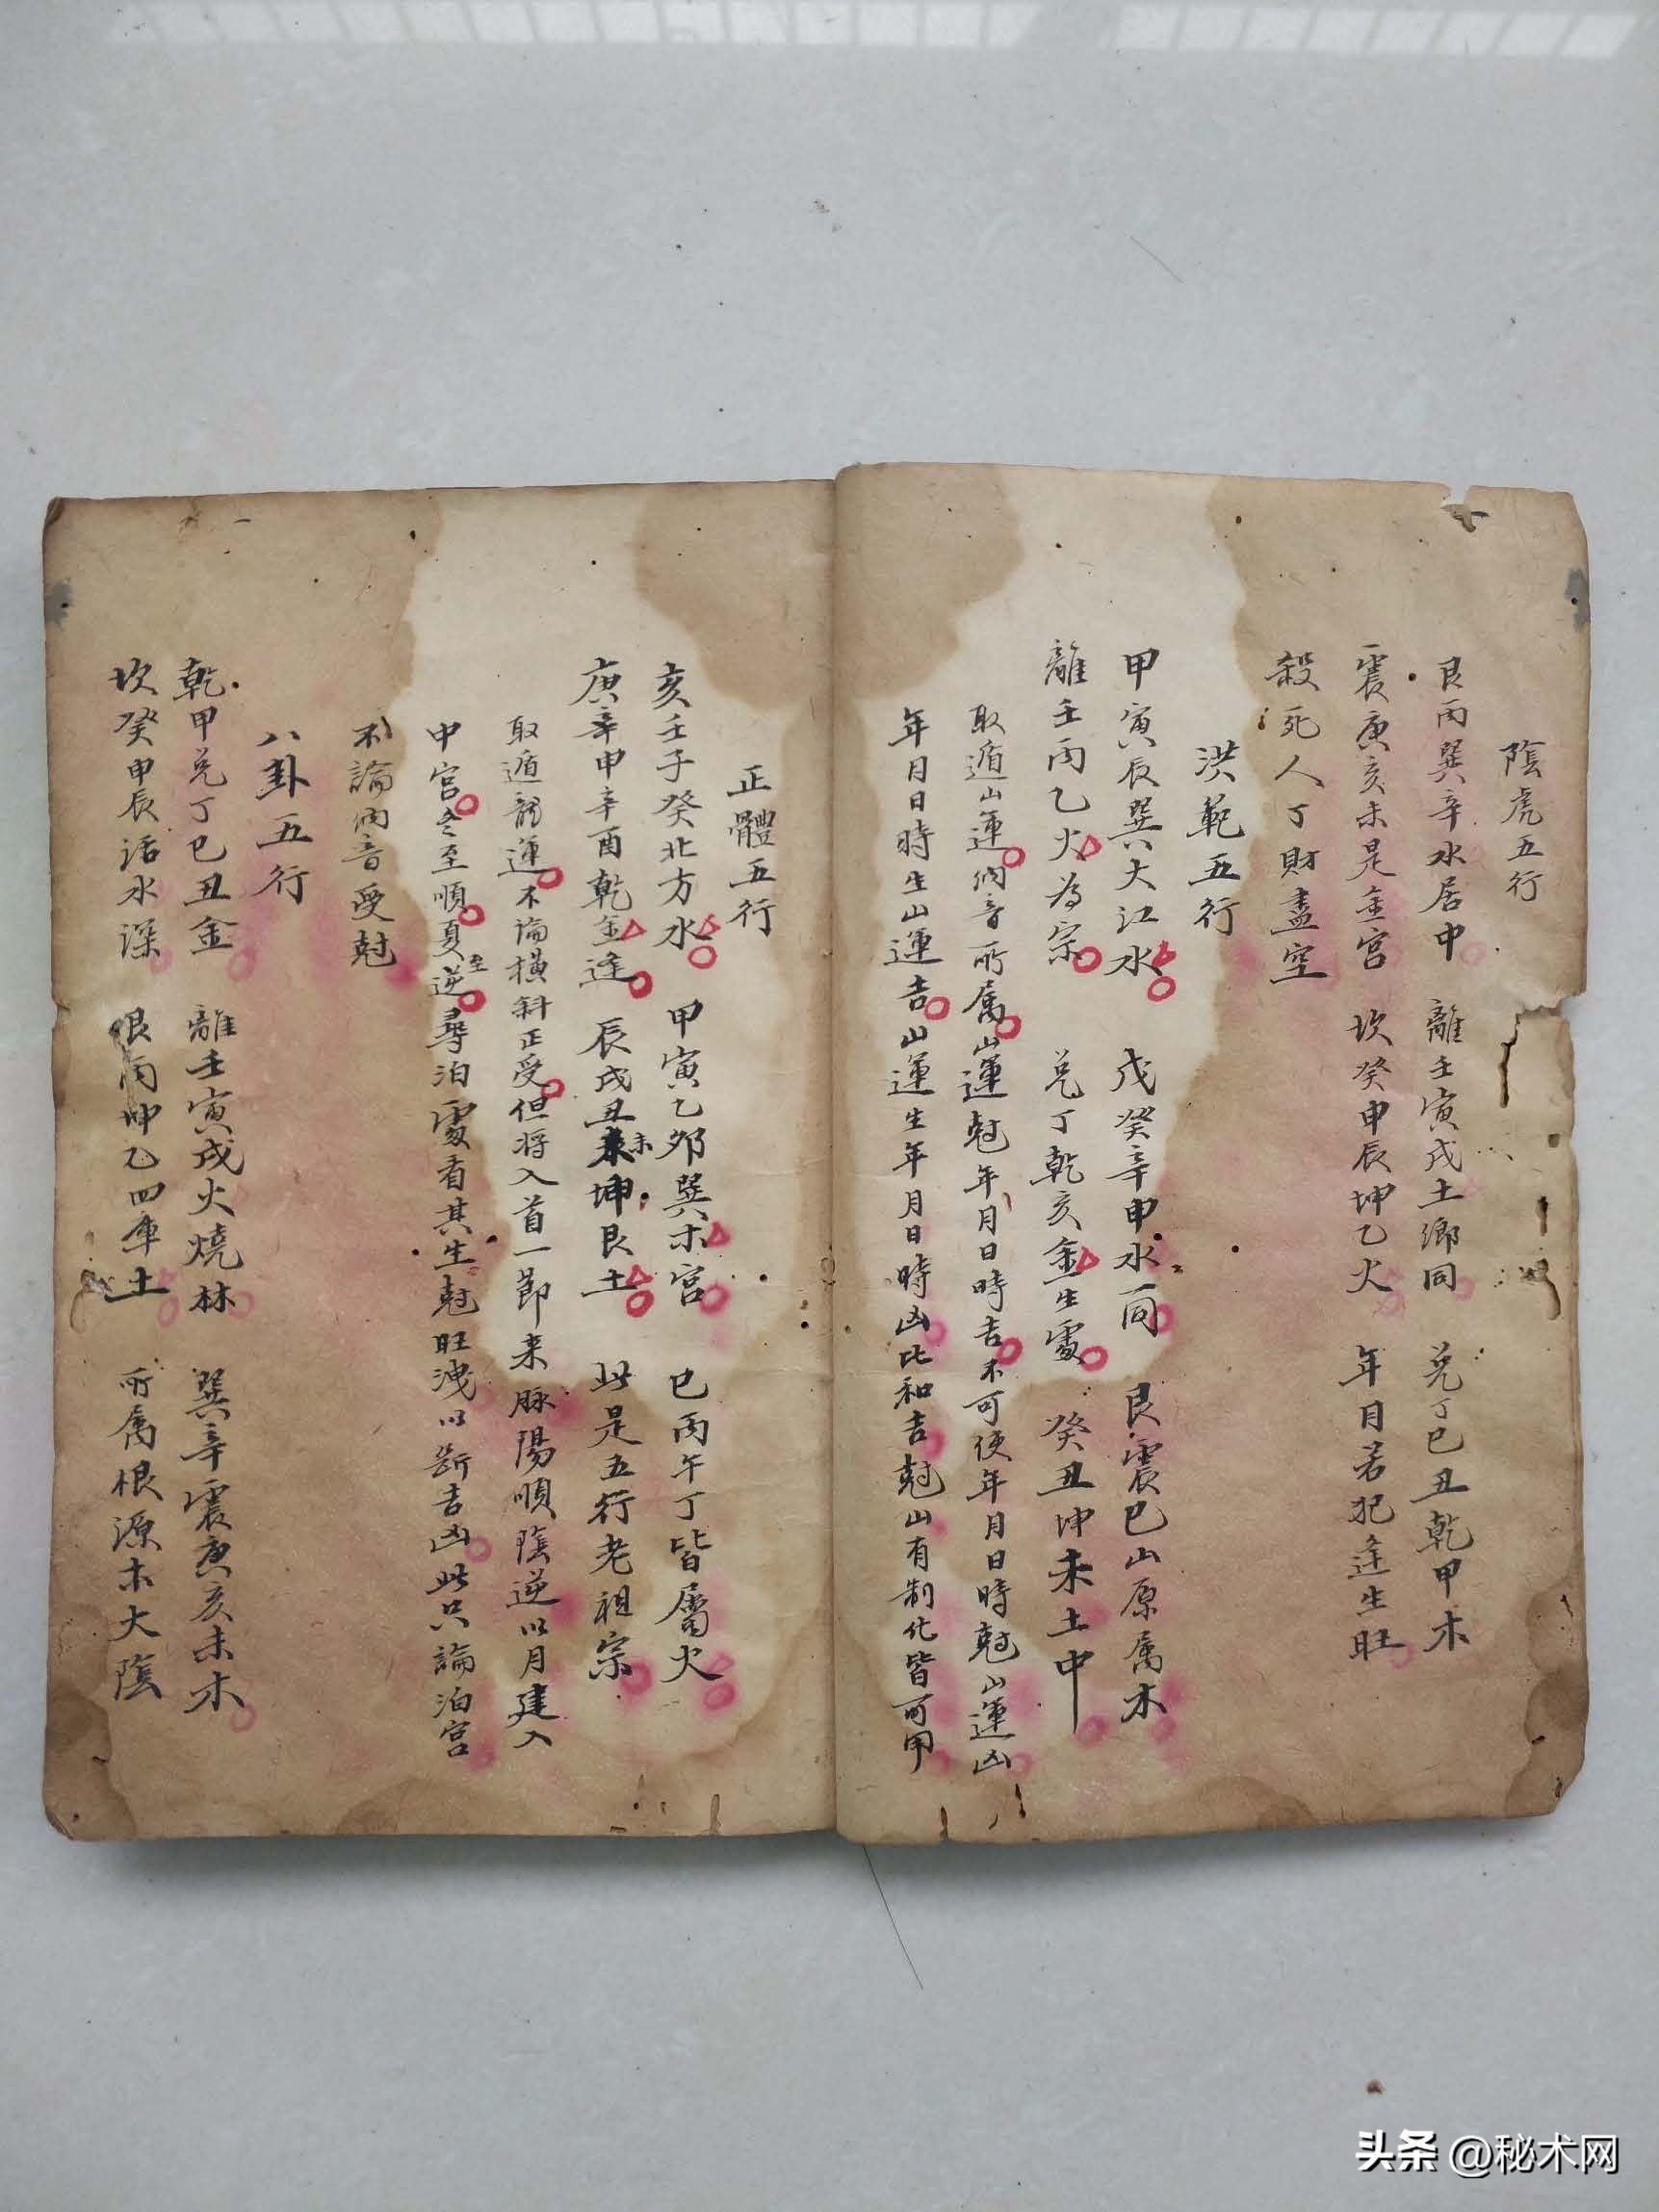 陰虎五行
艮丙巽辛水居中 離壬寅戌土鄉同 兑丁巳丑乾甲木
震庚亥未是金宫 坎癸申辰坤乙火 年月若犯逢生旺
殺死人丁財盡空
洪範五行
甲寅辰巽大江水 戌癸辛申水一同 艮震巳山原属木
離壬丙乙火為宗 兑丁乾亥金生處 癸丑坤未土中
取遁山運納音所属山運尅年月日時吉不可使年月日時尅山運凶
年月日時生山運吉山運生年月日時凶比和吉尅山有制化皆可用
正體五行
亥壬子癸北方水 甲寅乙夘巽木宮 巳丙午丁皆屬火
庚辛申辛酉乾金逢 辰戌丑未坤艮土 此是五行老祖宗
取遁龍運不論橫斜正受但将入首一節来脉陽順陰逆以月建入
中宫冬至順夏至逆尋泊處看其生尅旺洩以断吉凶此只論泊宫
不論納音受尅
八卦五行
乾甲兑丁巳丑金 離壬寅戌火燒林 巽辛震庚亥未木
坎癸申辰活水深 艮丙坤乙四庫土 所属根源木大陰
头条 @秘术网